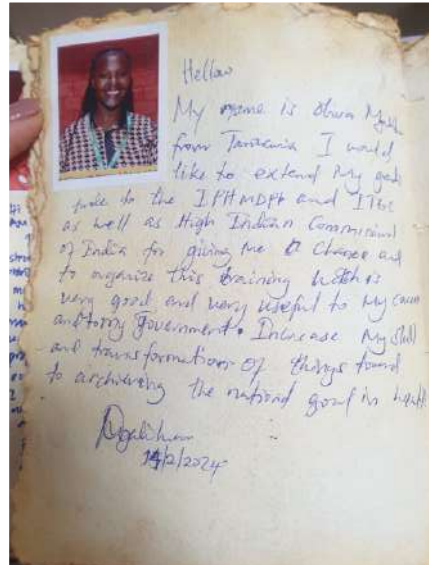 Hellow
My name is
from Tanzania I would
like to extend My grati
tude to the IPHMDPP and ITEC
as well as High Indian Commission
of India for giving me a Chance and
to organize this training which is
very good and very useful to My career
and to my Government. Increase My skill
and transformation of things toward
to archieving the national goal in health
14/2/2024